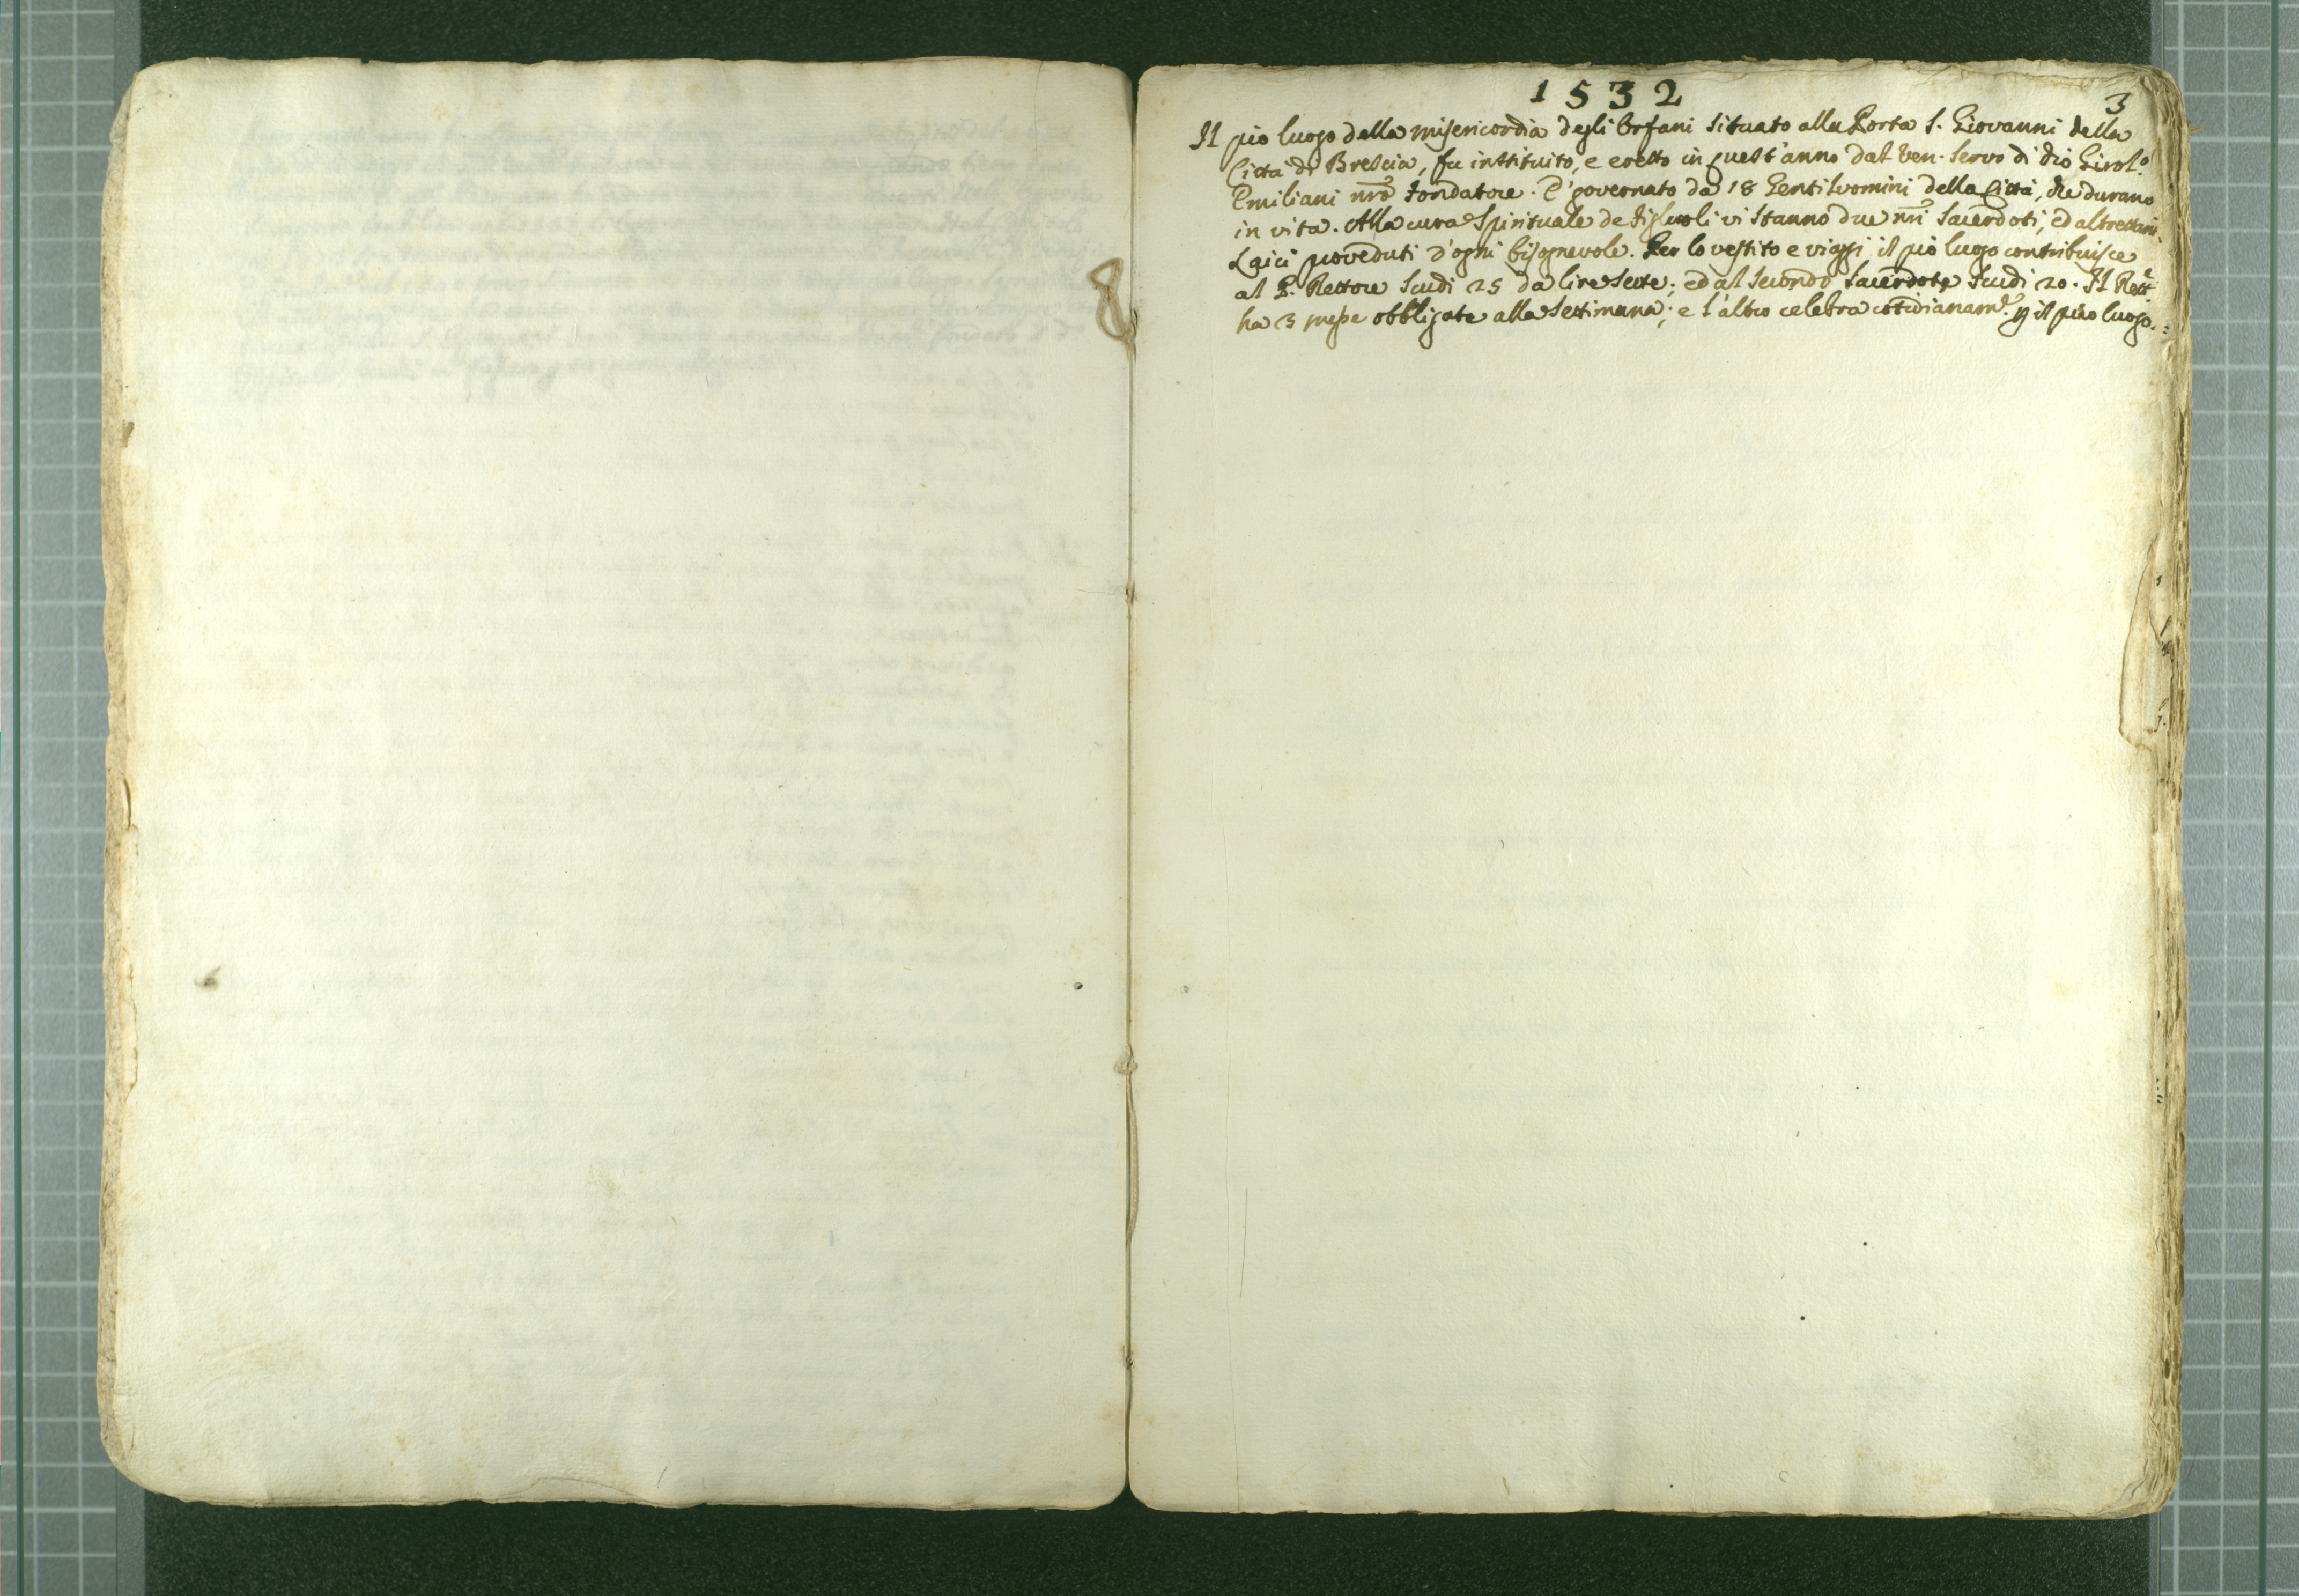 1532
3
Il pio luogo della misericordia degli Orfani situato alla Porta S. Giovanni della
Città di Brescia, fu instituito, e eretto in quest'anno dal Ven. Servo di Dio Girol.º
Emiliani nrõ Fondatore. E' governato da 18 Gentiluomini della Città, che durano
in vita. Alla cura Spirituale de Figluoli vi stanno due nrĩ Sacerdoti, ed altrettani
Laici proveduti d'ogni bisognevole. Per lo vestito e viaggi il pio luogo contribuisce
al P. Rettore Scudi 25 da lire Sette; ed al Secondo Sacerdote Scudi 20. Il Rett.e
ha 3 messe obbligate alla Settimana; e l'altro celebra cotidianam.e p il pio luogo.